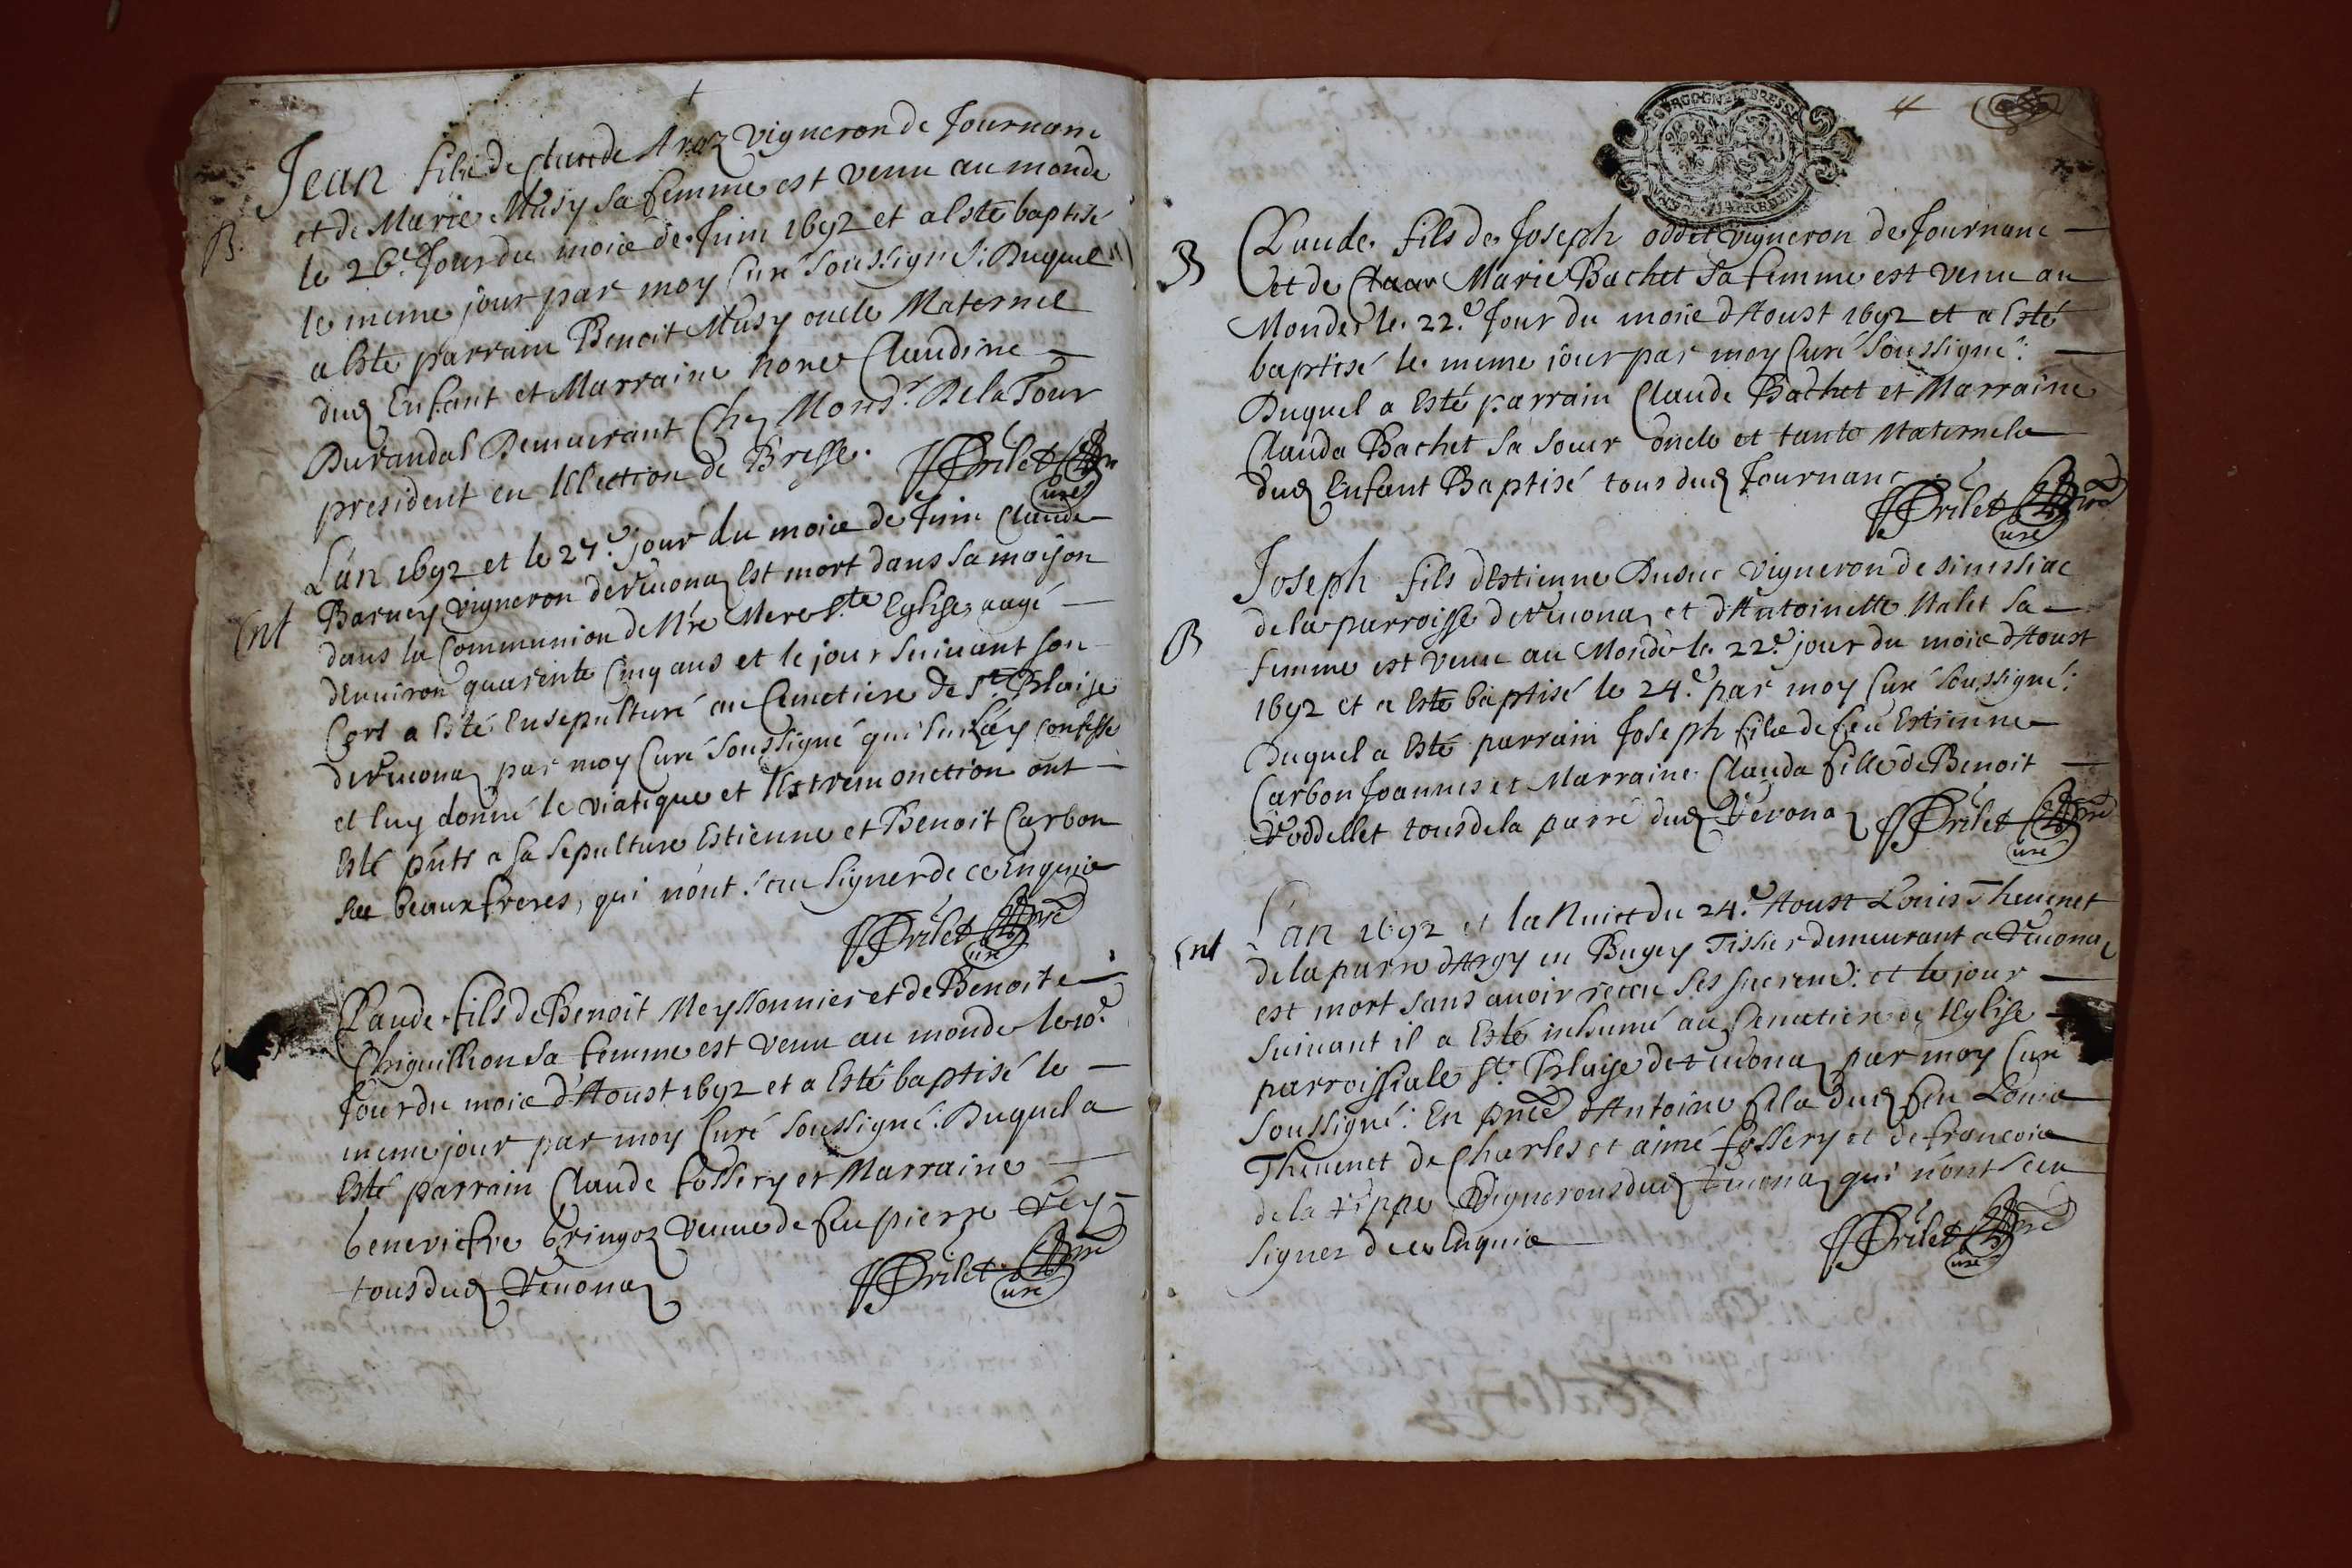 Jean fils de Claude Araz vigneron de Journanc
et de Marie Musy sa femme est venu au monde
B.
le 26.e Jour du mois de Juin 1692 et a esté baptisé
le meme jour par moy Curé soussigné: Duquel
a Esté parrain Benoit Musy oncle Maternel
dud Enfant et Marraine hon.e Claudine
Durandal Demeurant Chez Mons.r De la Tour
president en l'Election de Bresse.
Brilet curé
L'an 1692 et le 27.e jour du mois de Juin Claude
Barney vigneron de Veuonaz Est mort dans sa maison
Ent
dans la Communion de N're Mere S.te Eglise, aagé
d'Enuiron quarente Cinq ans et le jour suiuant son
Cort a Esté Ensepulturé au Cimetiere de S.t Blaise
de Veuonaz par moy Curé soussigné qui confessé
et luy donné le viatique et l'Extremonction ont
Esté pnts a sa sepulture Estienne et Benoit Carbon
ses beaux freres, qui n'ont sceu signer de ce Enquis
Brilet curé
Claude fils de Benoit Meyssonnier et de Benoite
Chiquillion sa femme est venu au monde le 10.e
Jour du mois d'Aoust 1692 et a Esté baptisé le
meme jour par moy Curé soussigné: Duquel a
Esté parrain Claude fossery et Marraine
benevictre bringoz veuue de feu pierre Vey
tous dud Veuonaz
Brilet curé
4
BOURGOGNE ET BRESSE
Claude fils de Joseph oddet vigneron de Journanc
B
et de Claur Marie Bachet sa femme est venu au
Monde le 22.e Jour du mois d'Aoust 1692 et a Esté
baptisé le meme jour par moy Curé soussigné:
Duquel a Esté parrain Claude Bachet et Marraine
Clauda Bachet sa soeur oncle et tante Maternele
dud Enfant Baptisé tous dud Journanc
Brilet curé
Joseph fils d'Estienne Dusuc vigneron de
de la parroisse de Veuonaz et d'Antoinette Malet sa
B
femme est venu au Monde le 22.e jour du mois d'Aoust
1692 et a Esté baptisé le 24.e par moy Curé soussigné:
Duquel a Esté parrain Joseph fils de feu Estienne
Carbon Joannes et Marraine Clauda fille de Benoit
Voddellet tous de la parre dud Verona
Brilet curé
L'an 1692 et la Nuict du 24.e Aoust Louis Theuenet
Ent
de la parre d'Argy en Bugey Tissier demeurant a Veuonaz
est mort sans auoir receu ses sacremt: et le jour
suiuant il a Esté inhumé au Cemetiere de l'Eglise
parroissiale S.t Blaise de Veuonaz par moy Curé
soussigné: En pnce d'Antoine fils dud feu Louis
Theuenet de Charles et aimé fossery et de francois
de la Vippe Vignerons dud Veuonaz qui n'ont sceu
signer de ce Enquis
Brilet curé